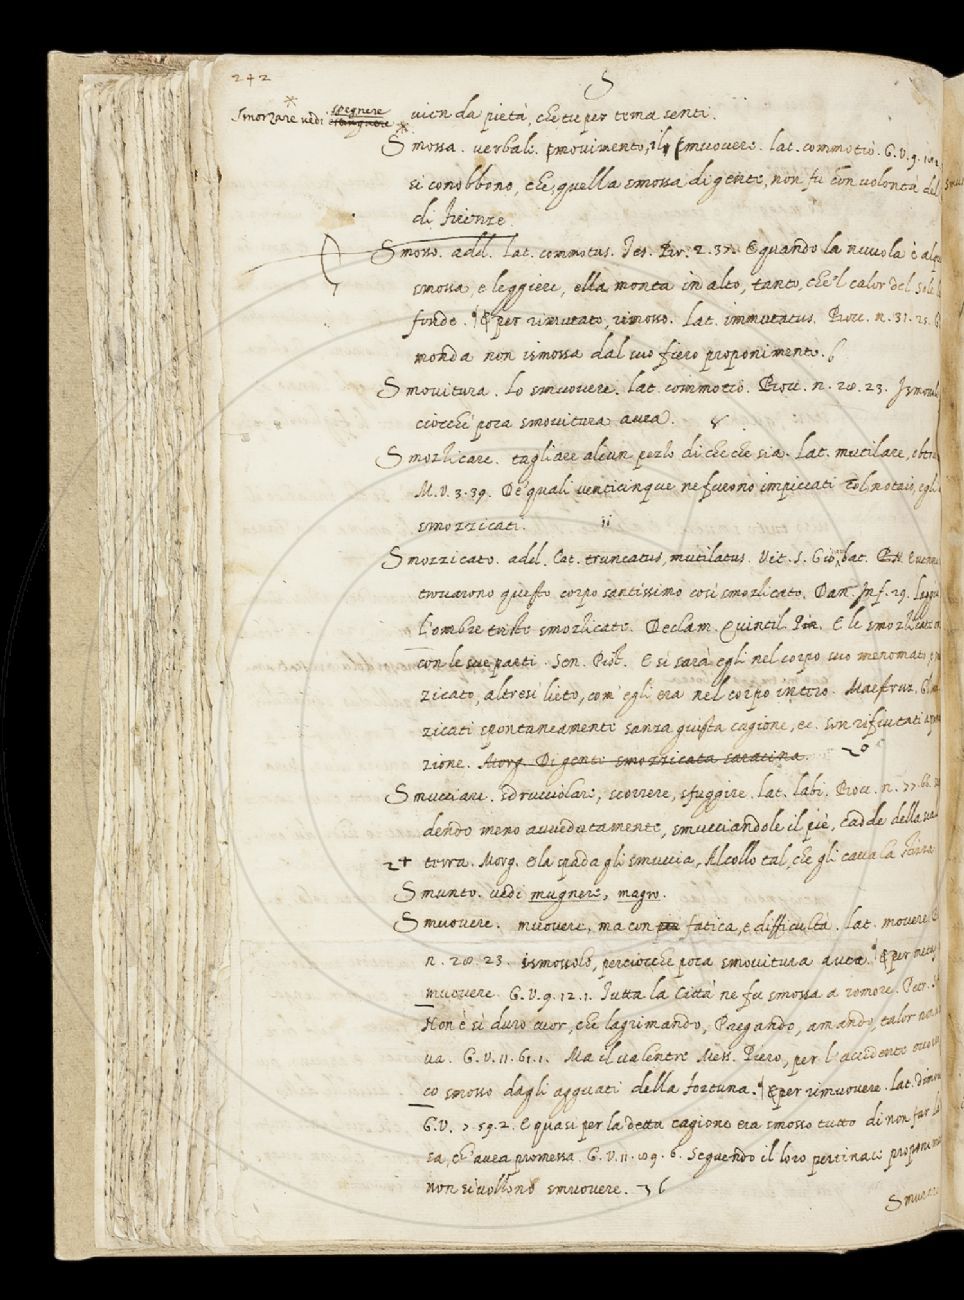 242
S
* Smorzare vedi spegnere
vien da pietà, che tu per tema senti.
Smossa. verbale. movimento, smuovere. lat. commotio. G.V. 9.
si conobbono, che quella smossa di gente, non fu con volontà del
di Firenze
Smosso. add. lat. commotus. Tes. Br. 2. 37. E quando la nuvola è
smossa, e leggiere, ella monta in alto, tanto, che 'l calor del Sole
fonde. ¶ E per rimutato, rimosso. Lat. immutatus. Bocc. n. 31. 25.
monda non ismossa dal suo fiero proponimento. 6
Smovitura. lo smuovere. lat. commotio. Bocc. n. 28. 23.
ciocchè poca smovitura avea.
Smozzicare. tagliare alcun pezzo di che che sia. Lat. mutilare,
M.V. 3. 39. De' quali venticinque ne fuerono impiccati col notaio, egli
smozzicati.
Smozzicato. add. Lat. truncatus, mutilatus. Vit. S. Gio. bat. E
trovarono questo corpo santissimo così smozzicato. Dan. Inf. 29.
l'ombre triste smozzicate. Declam. Quintil. E le smozzicate
con le sue parti. Sen. Pist. E si sarà egli nel corpo suo menomato
zicato, altresì lieto, com' egli era nel corpo intero. Maestruz.
zicati spontaneamente sanza giusta cagione, ec. son rifiutati
zione. Morg. Di gente smozzicata saracina. 20
Smucciare. sdrucciolare, scorrere, sfuggire. lat. labi. Bocc. n. 77.
dendo meno avvedutamente, smucciandole il piè, cadde della
24 terra. Morg. E la spada gli smuccia, Al collo tal, che gli cava la
Smunto. vedi mugnere, magro.
Smuovere. muovere, ma con fatica, e difficultà. lat. movere
n. 28. 23. ismossolo, perciocchè poca smovitura avea. ¶ E per
muovere. G.V. 9. 12. 1. Tutta la Città ne fu smossa a romore. Petr.
Non è sì duro cuor, che lagrimando, Pregando, amando, talor non
va. G.V. 11. 61. 1. Ma il valentre Mess. Piero, per l'accidente
co smosso dagli agguati della fortuna. ¶ E per rimuovere. lat.
G.V. 7. 59. 2. E quasi per la detta cagione era smosso tutto di non far la
sa, ch' avea promessa. G.V. 11. 89. 6. Seguendo il loro pertinace
non si vollono smuovere. 36